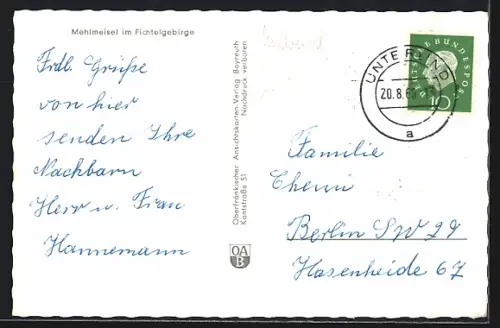 Mehlmeisel im Fichtelgebirge
Frdl. Grüße
von hier
senden Ihre
Nachbarn
Herr u. Frau
Hannemann
Oberfränkischer Ansichtskarten-Verlag Bayreuth
Kantstraße 31
Nachdruck verboten
OA
B
UNTERLIND
20.8.60
a
DEUTSCHE BUNDESPOST
10
Familie
Chemi
Berlin SW 29
Hasenheide 67